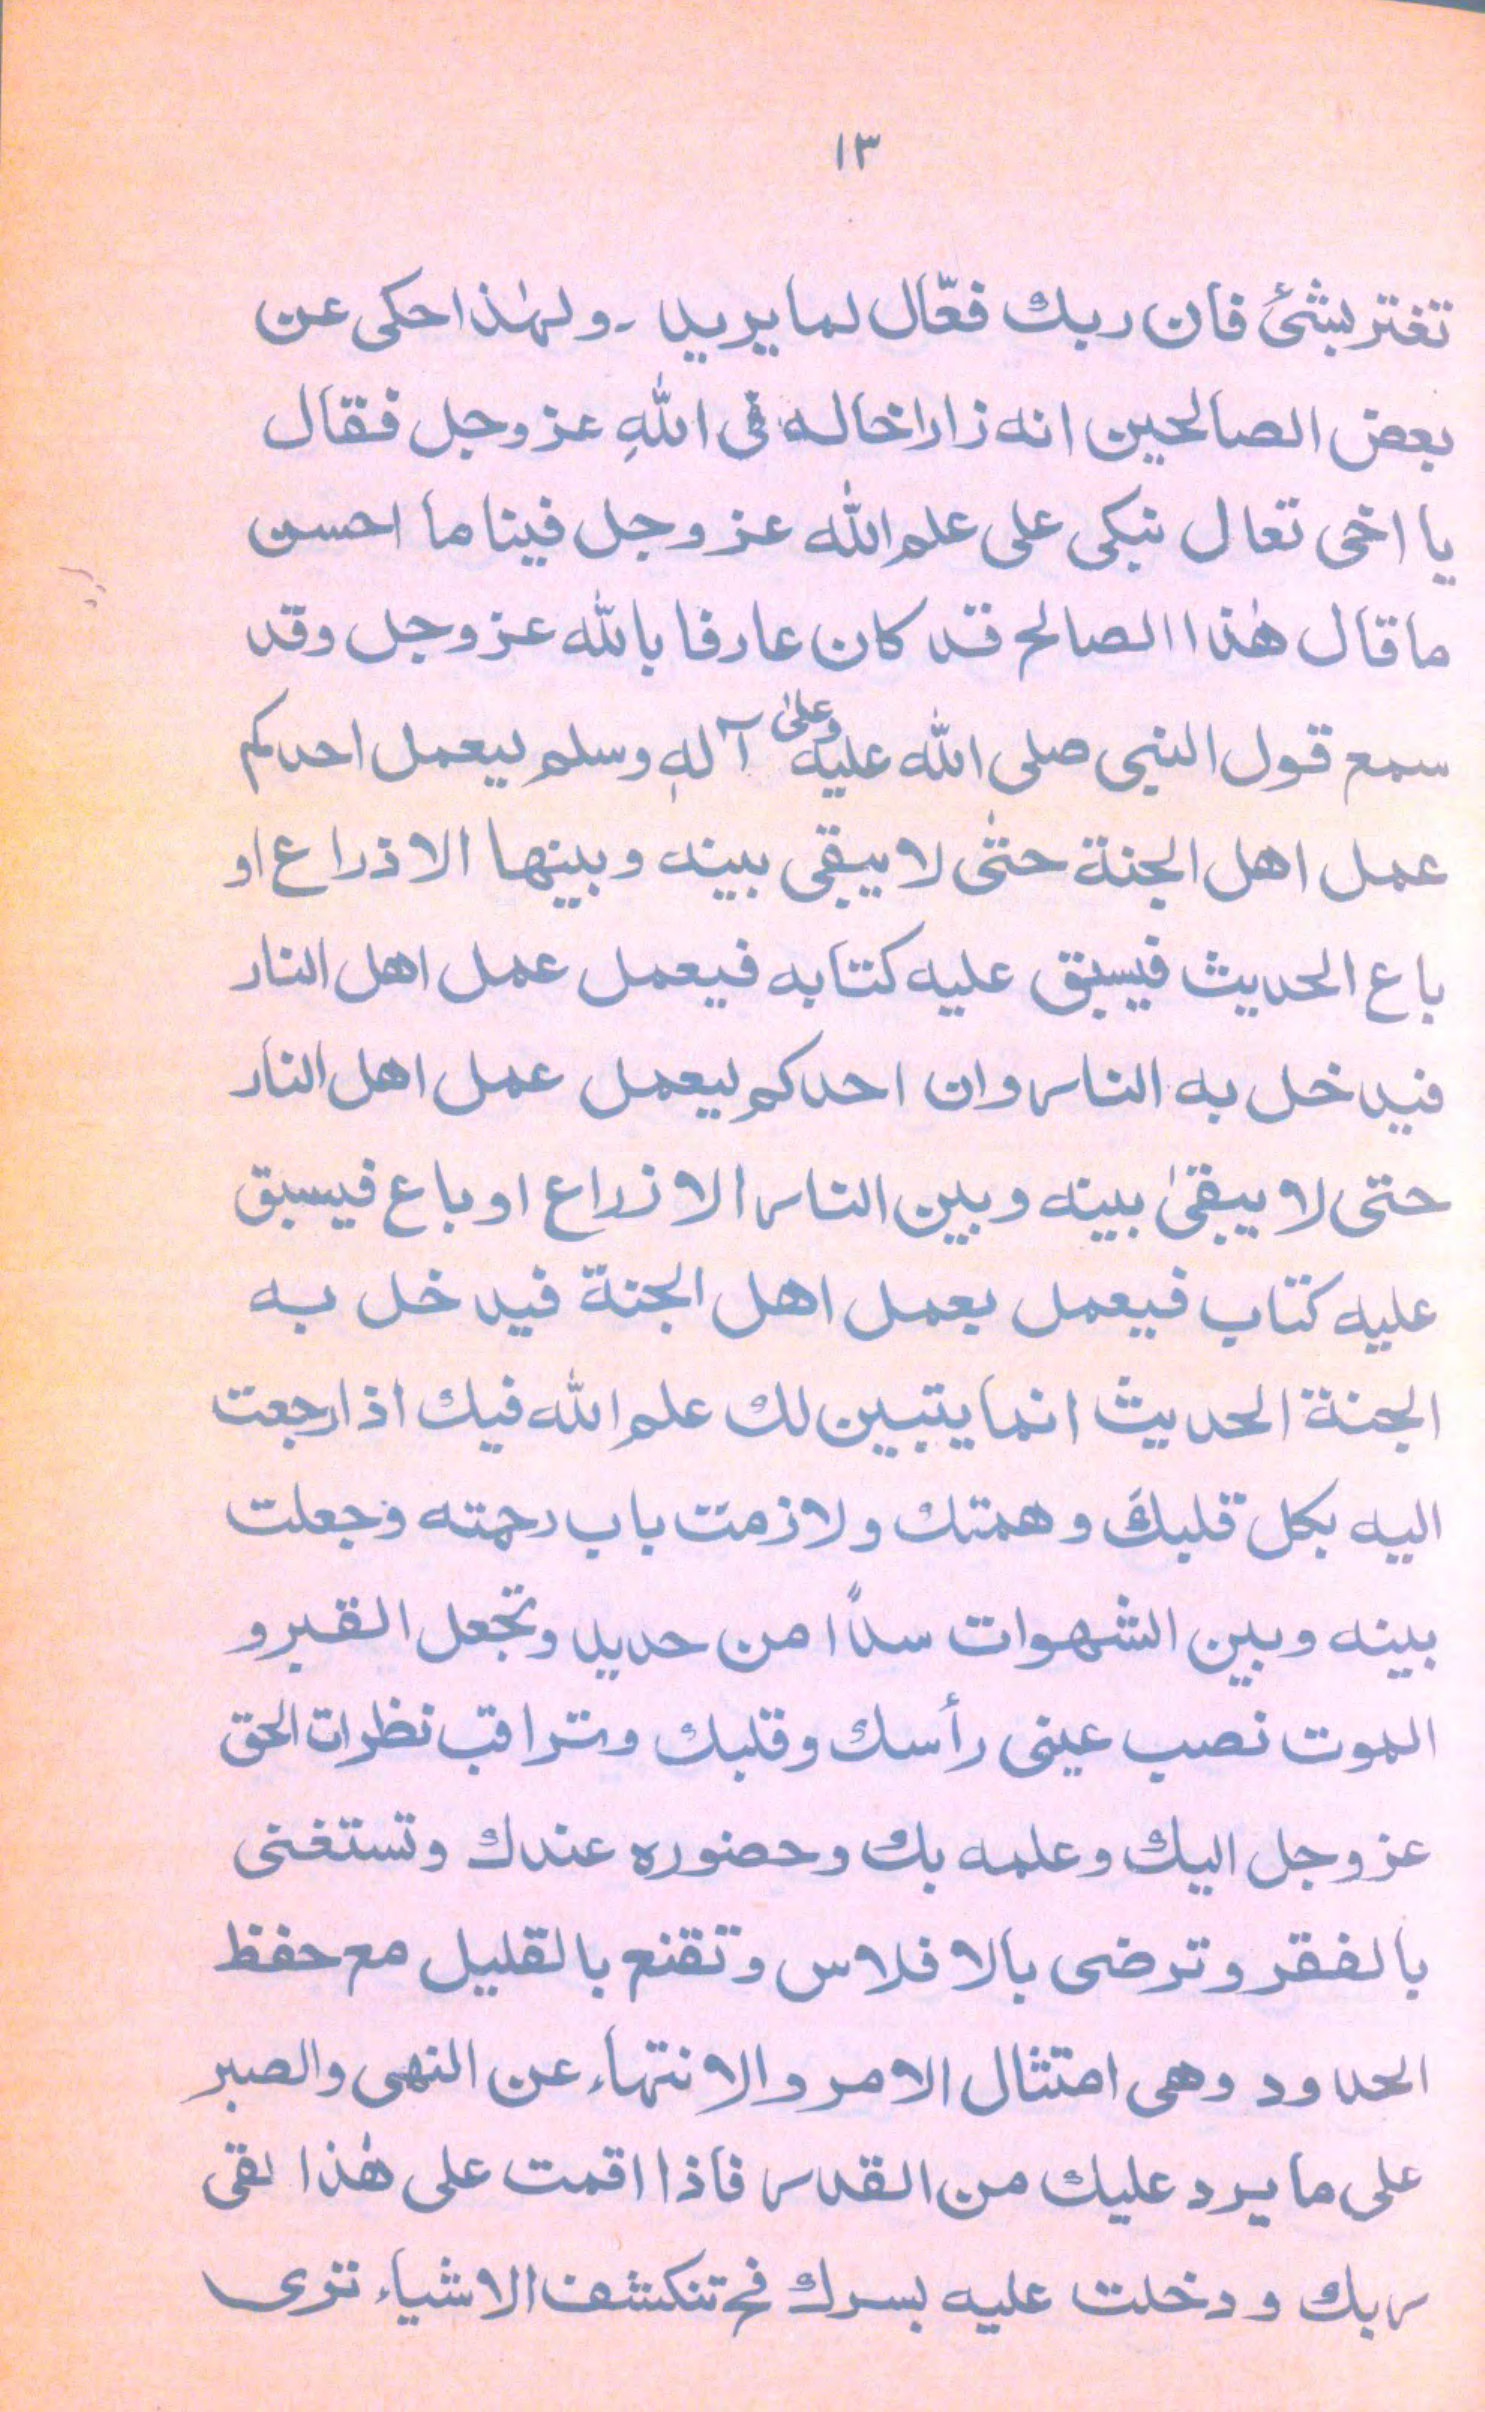 ١٣
تغتر بشئ فان ربك فعّال لما يريد ۔ ولهٰذا حكى عن
بعض الصالحين انه زار اخا له فى اللهِ عز وجل فقال
يا اخى تعال نبكى على علم الله عز وجل فينا ما احسن
ما قال هٰذا الصالح قد كان عارفا بالله عز وجل وقد
سمع قول النبى صلى الله عليه وعلىٰ آلهٖ وسلم ليعمل احدكم
عمل اهل الجنة حتىٰ لا يبقى بينه وبينها الا ذراع او
باع الحديث فيسبق عليه كتابه فيعمل عمل اهل النار
فيدخل به النار وان احدكم ليعمل عمل اهل النار
حتى لا يبقىٰ بينه وبين النار الا زراع او باع فيسبق
عليه كتاب فيعمل بعمل اهل الجنة فيدخل به
الجنة الحديث انما يتبين لك علم الله فيك اذا رجعت
اليه بكل قلبكَ وهمتك ولازمت باب رحمته وجعلت
بينه وبين الشهوات سدًا من حديد وتجعل القبر و
الموت نصب عينى رأسك وقلبك وتراقب نظرات الحق
عز وجل اليك وعلمه بك وحضوره عندك وتستغنى
بالفقر وترضى بالافلاس وتقنع بالقليل مع حفظ
الحدود وهى امتثال الامر والانتهاء عن النهى والصبر
على ما يرد عليك من القدر فاذا اقمت على هٰذا لقى
ربك ودخلت عليه بسرك فح تنكشف الاشياء ترى